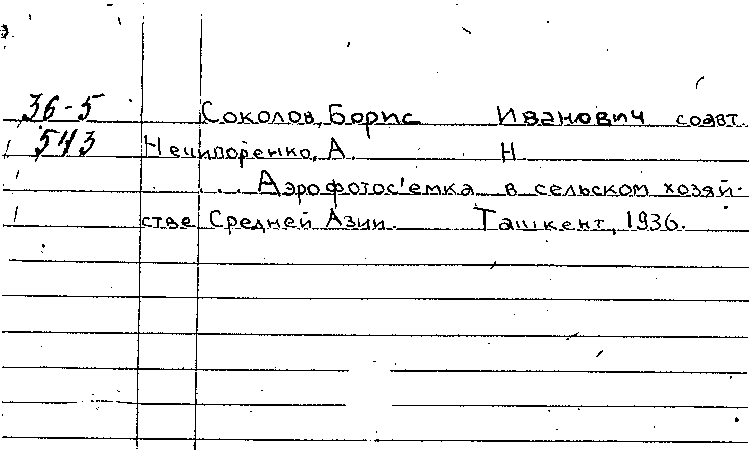 36-5 Соколов, Борис Иванович соавт.
543 Нечипоренко, А. Н
... Аэрофотос'емка в сельском хозяй-
стве Средней Азии. Ташкент, 1936.